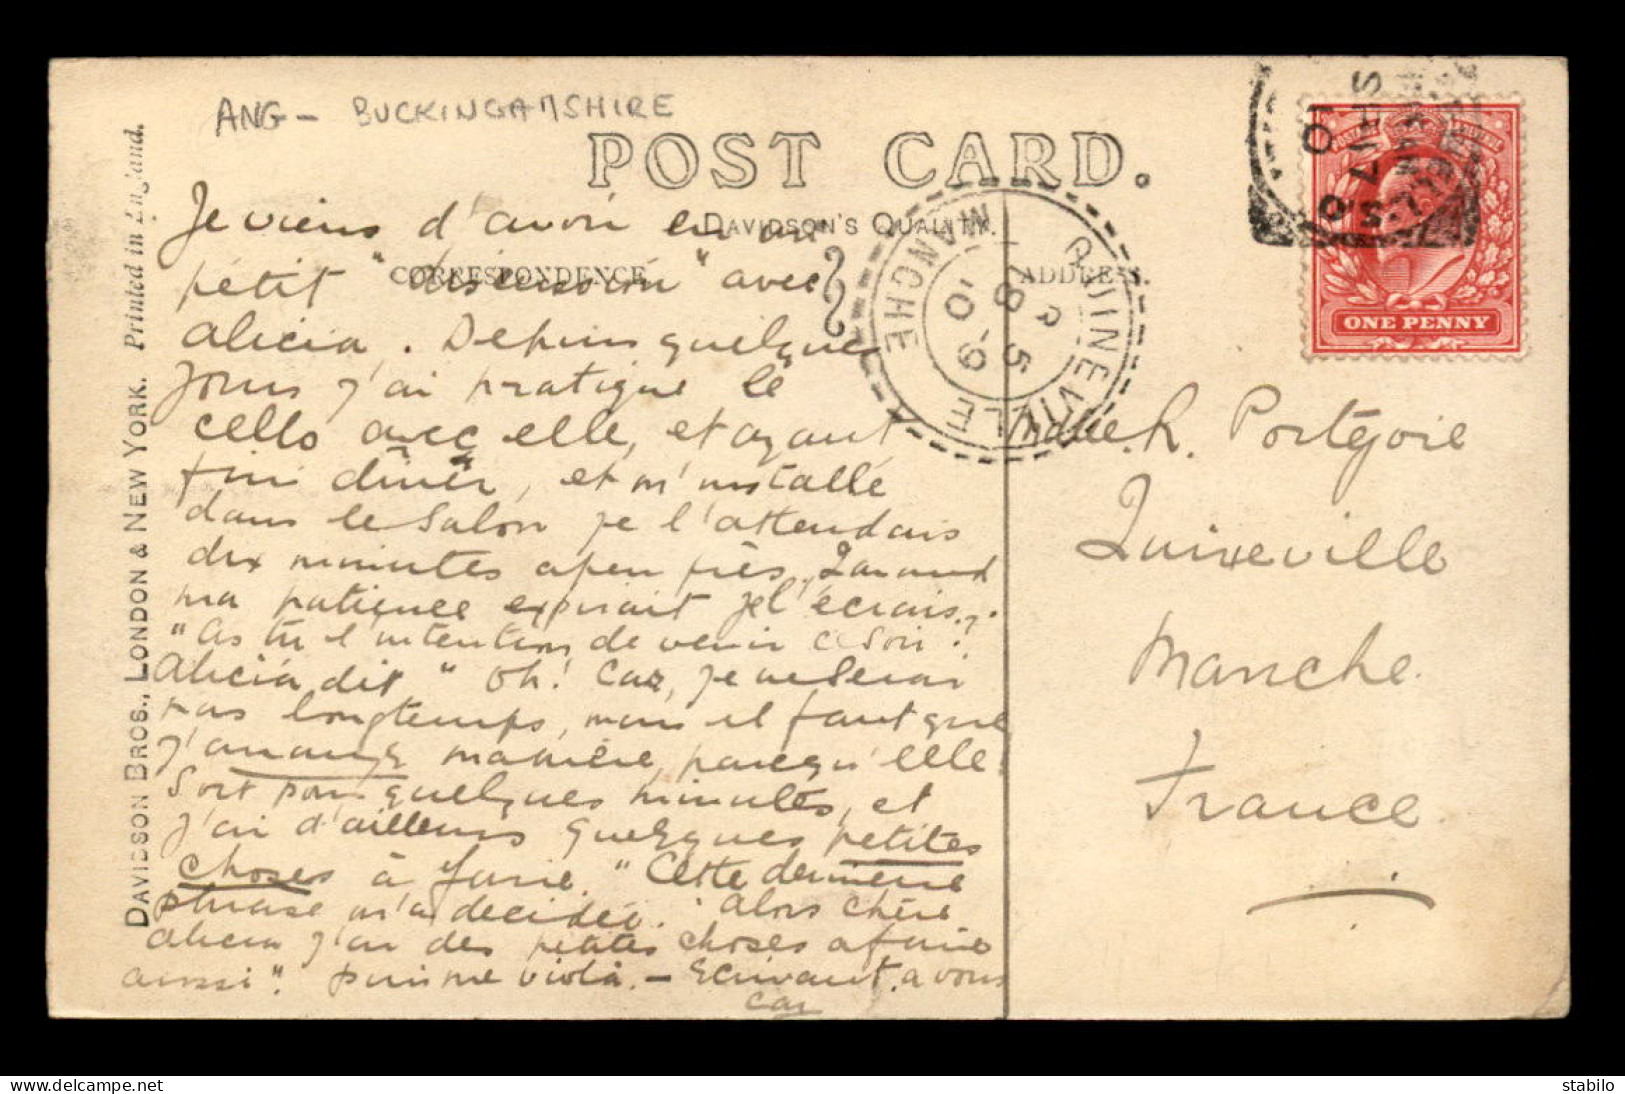 ANG - BUCKINGAMSHIRE
POST CARD.
DAVIDSON'S QUALITY.
CORRESPONDENCE
ADDRESS.
DAVIDSON BROS., LONDON & NEW YORK. Printed in England.
ONE PENNY
QUINEVILLE
MANCHE
18
5
10-9
SP 17
Je viens d'avoir eu un
pétit "discussion" avec
Alicia. Depuis quelques
jours j'ai pratique le
cello avec elle, et ayant
fini dîner, et m'installé
dans le salon je l'attendais
dix minutes apeu près. Quand
ma patience expirait je l'écriais.
"As tu l'intention de venir ce soir?
Alicia dit "Oh! Caz, je ne serai
pas longtemps, mais il faut que
j'arrange manière, parcequ'elle
sort pour quelques minutes, et
j'ai d'ailleurs quelques petites
choses à faire." Cette dernière
phrase m'a decidée. "Alors chère
Alicia j'ai des petites choses a faire
aussi". puis me violà. — Ecrivant a vous
Caz
R. Portégoie
Quineville
Manche.
France.
stabilo